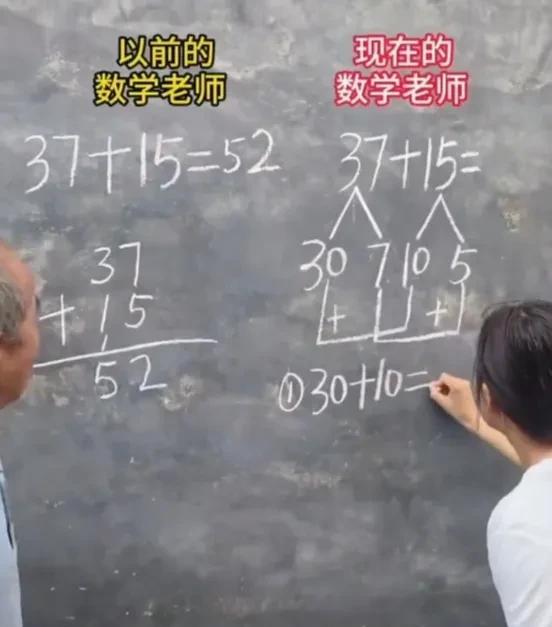 以前的
数学老师
37+15=52
37
+ 15
52
现在的
数学老师
37+15=
30 7 10 5
+ +
①30+10=